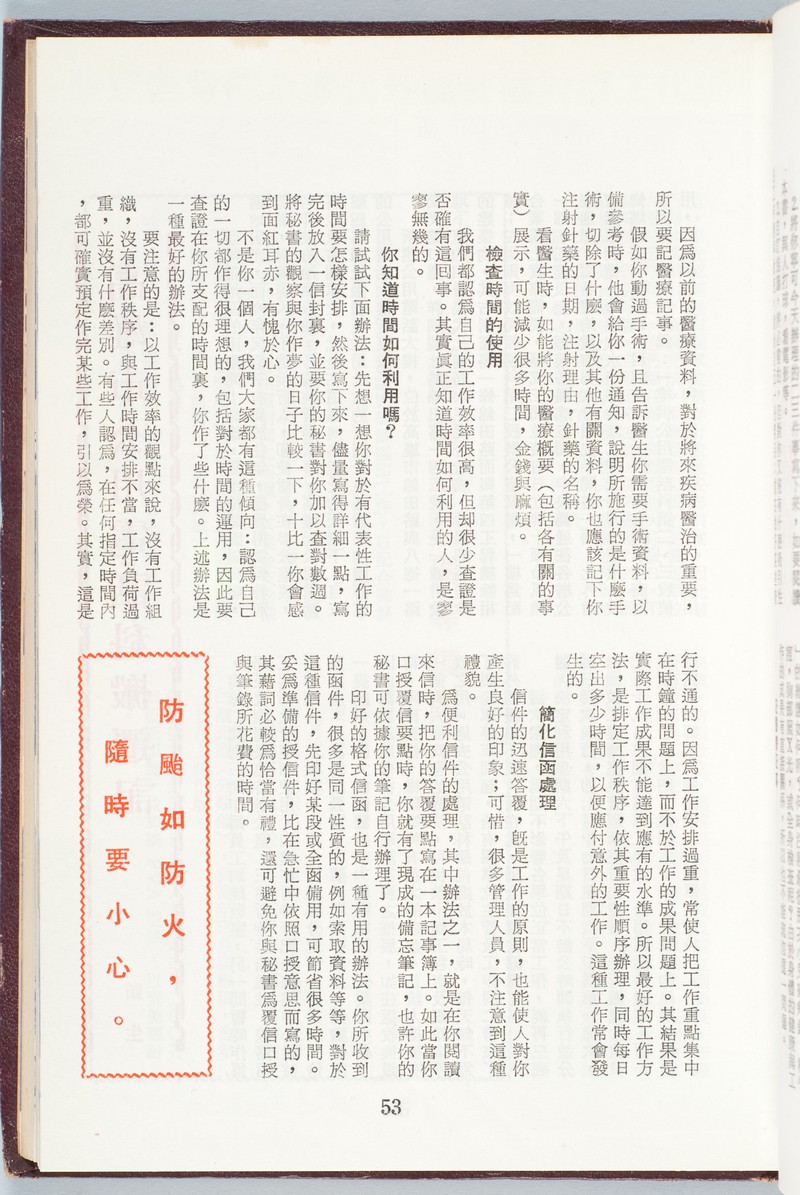 因爲以前的醫療資料，對於將來疾病醫治的重要，
所以要記醫療記事。
假如你動過手術，且告訴醫生你需要手術資料，以
備參考時，他會給你一份通知，說明所施行的是什麼手
術，切除了什麼，以及其他有關資料，你也應該記下你
注射針藥的日期，注射理由，針藥的名稱。
看醫生時，如能將你的醫療概要（包括各有關的事
實）展示，可能減少很多時間，金錢與麻煩。
檢查時間的使用
我們都認爲自己的工作效率很高，但却很少查證是
否確有這回事。其實眞正知道時間如何利用的人，是寥
寥無幾的。
你知道時間如何利用嗎？
請試試下面辦法：先想一想你對於有代表性工作的
時間要怎樣安排，然後寫下來，儘量寫得詳細一點，寫
完後放入一信封裏，並要你的秘書對你加以查對數週。
將秘書的觀察與你作夢的日子比較一下，十比一你會感
到面紅耳赤，有愧於心。
不是你一個人，我們大家都有這種傾向：認爲自己
的一切都作得很理想的，包括對於時間的運用，因此要
查證在你所支配的時間裏，你作了些什麼。上述辦法是
一種最好的辦法。
要注意的是：以工作效率的觀點來說，沒有工作組
織，沒有工作秩序，與工作時間安排不當，工作負荷過
重，並沒有什麼差別。有些人認爲，在任何指定時間內
，都可確實預定作完某些工作，引以爲榮。其實，這是
行不通的。因爲工作安排過重，常使人把工作重點集中
在時鐘的問題上，而不於工作的成果問題上。其結果是
實際工作成果不能達到應有的水準。所以最好的工作方
法，是排定工作秩序，依其重要性順序辦理，同時每日
空出多少時間，以便應付意外的工作。這種工作常會發
生的。
簡化信函處理
信件的迅速答覆，旣是工作的原則，也能使人對你
產生良好的印象；可惜，很多管理人員，不注意到這種
禮貌。
爲便利信件的處理，其中辦法之一，就是在你閱讀
來信時，把你的答覆要點寫在一本記事簿上。如此當你
口授覆信要點時，你就有了現成的備忘筆記，也許你的
秘書可依據你的筆記自行辦理了。
印好的格式信函，也是一種有用的辦法。你所收到
的函件，很多是同一性質的，例如索取資料等等，對於
這種信件，先印好某段或全函備用，可節省很多時間。
妥爲準備的授信件，比在急忙中依照口授意思而寫的，
其藉詞必較爲恰當有禮，還可避免你與秘書爲覆信口授
與筆錄所花費的時間。
防颱如防火，
隨時要小心。
53